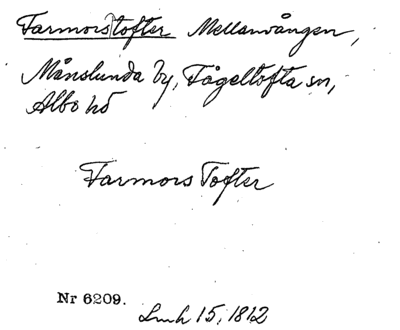 Farmors|tofter Mellanvången,
Månslunda by, Fågeltofta sn,
Albo hd
Farmors Tofter
Nr 6209.
Lmh 15, 1812